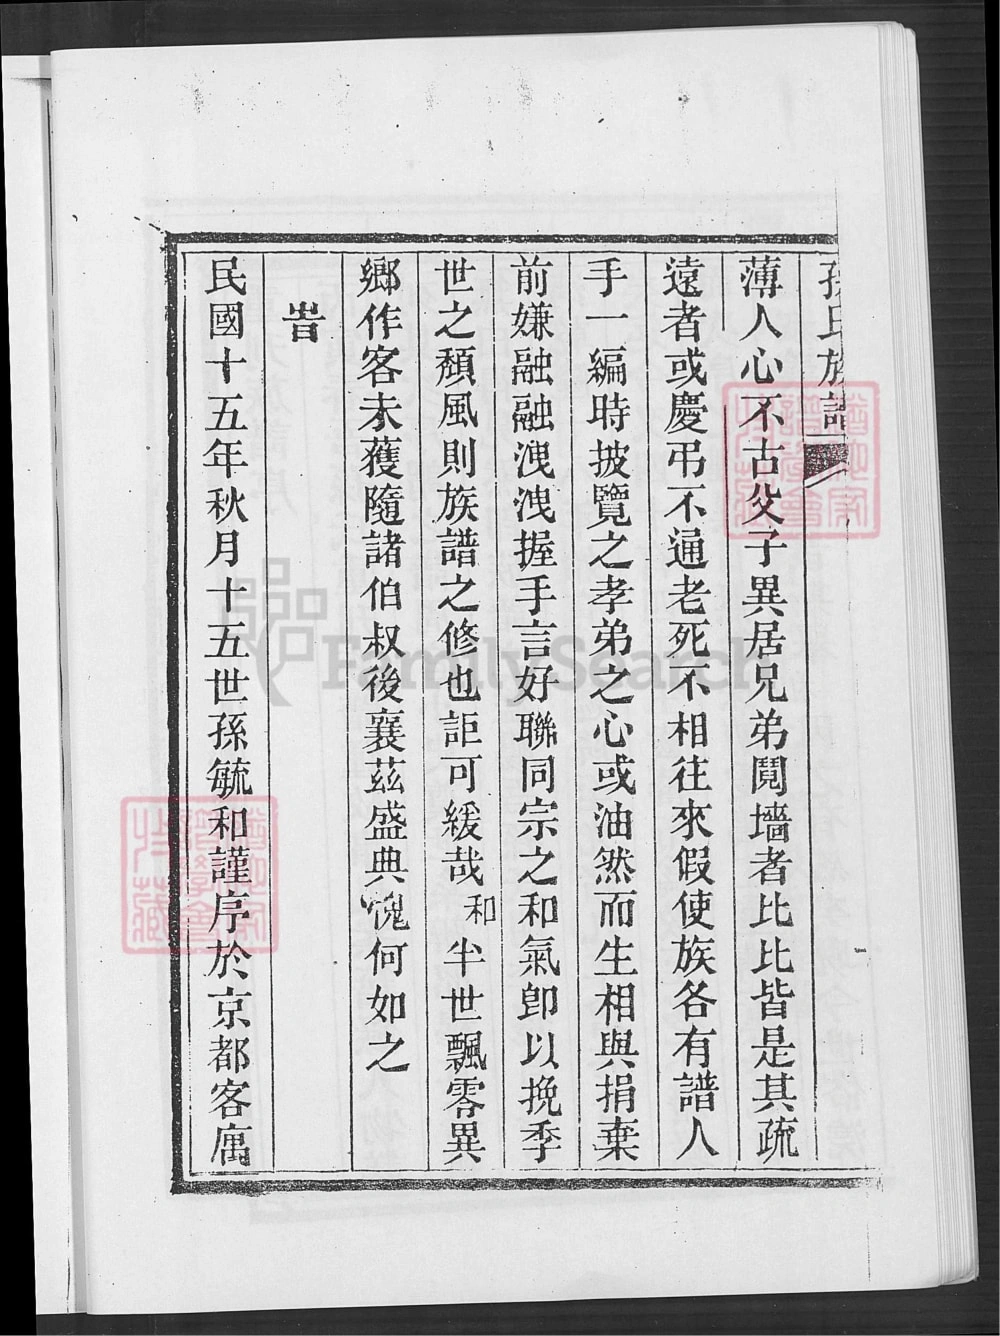 孫氏族譜
薄人心不古父子異居兄弟䦧墻者比比皆是其疏
遠者或慶弔不通老死不相往來假使族各有譜人
手一編時披覽之孝弟之心或油然而生相與捐棄
前嫌融融洩洩握手言好聯同宗之和氣卽以挽季
世之頹風則族譜之修也詎可緩哉和半世飄零異
鄉作客未獲隨諸伯叔後襄茲盛典愧何如之
旹
民國十五年秋月十五世孫毓和謹序於京都客寓
FamilySearch